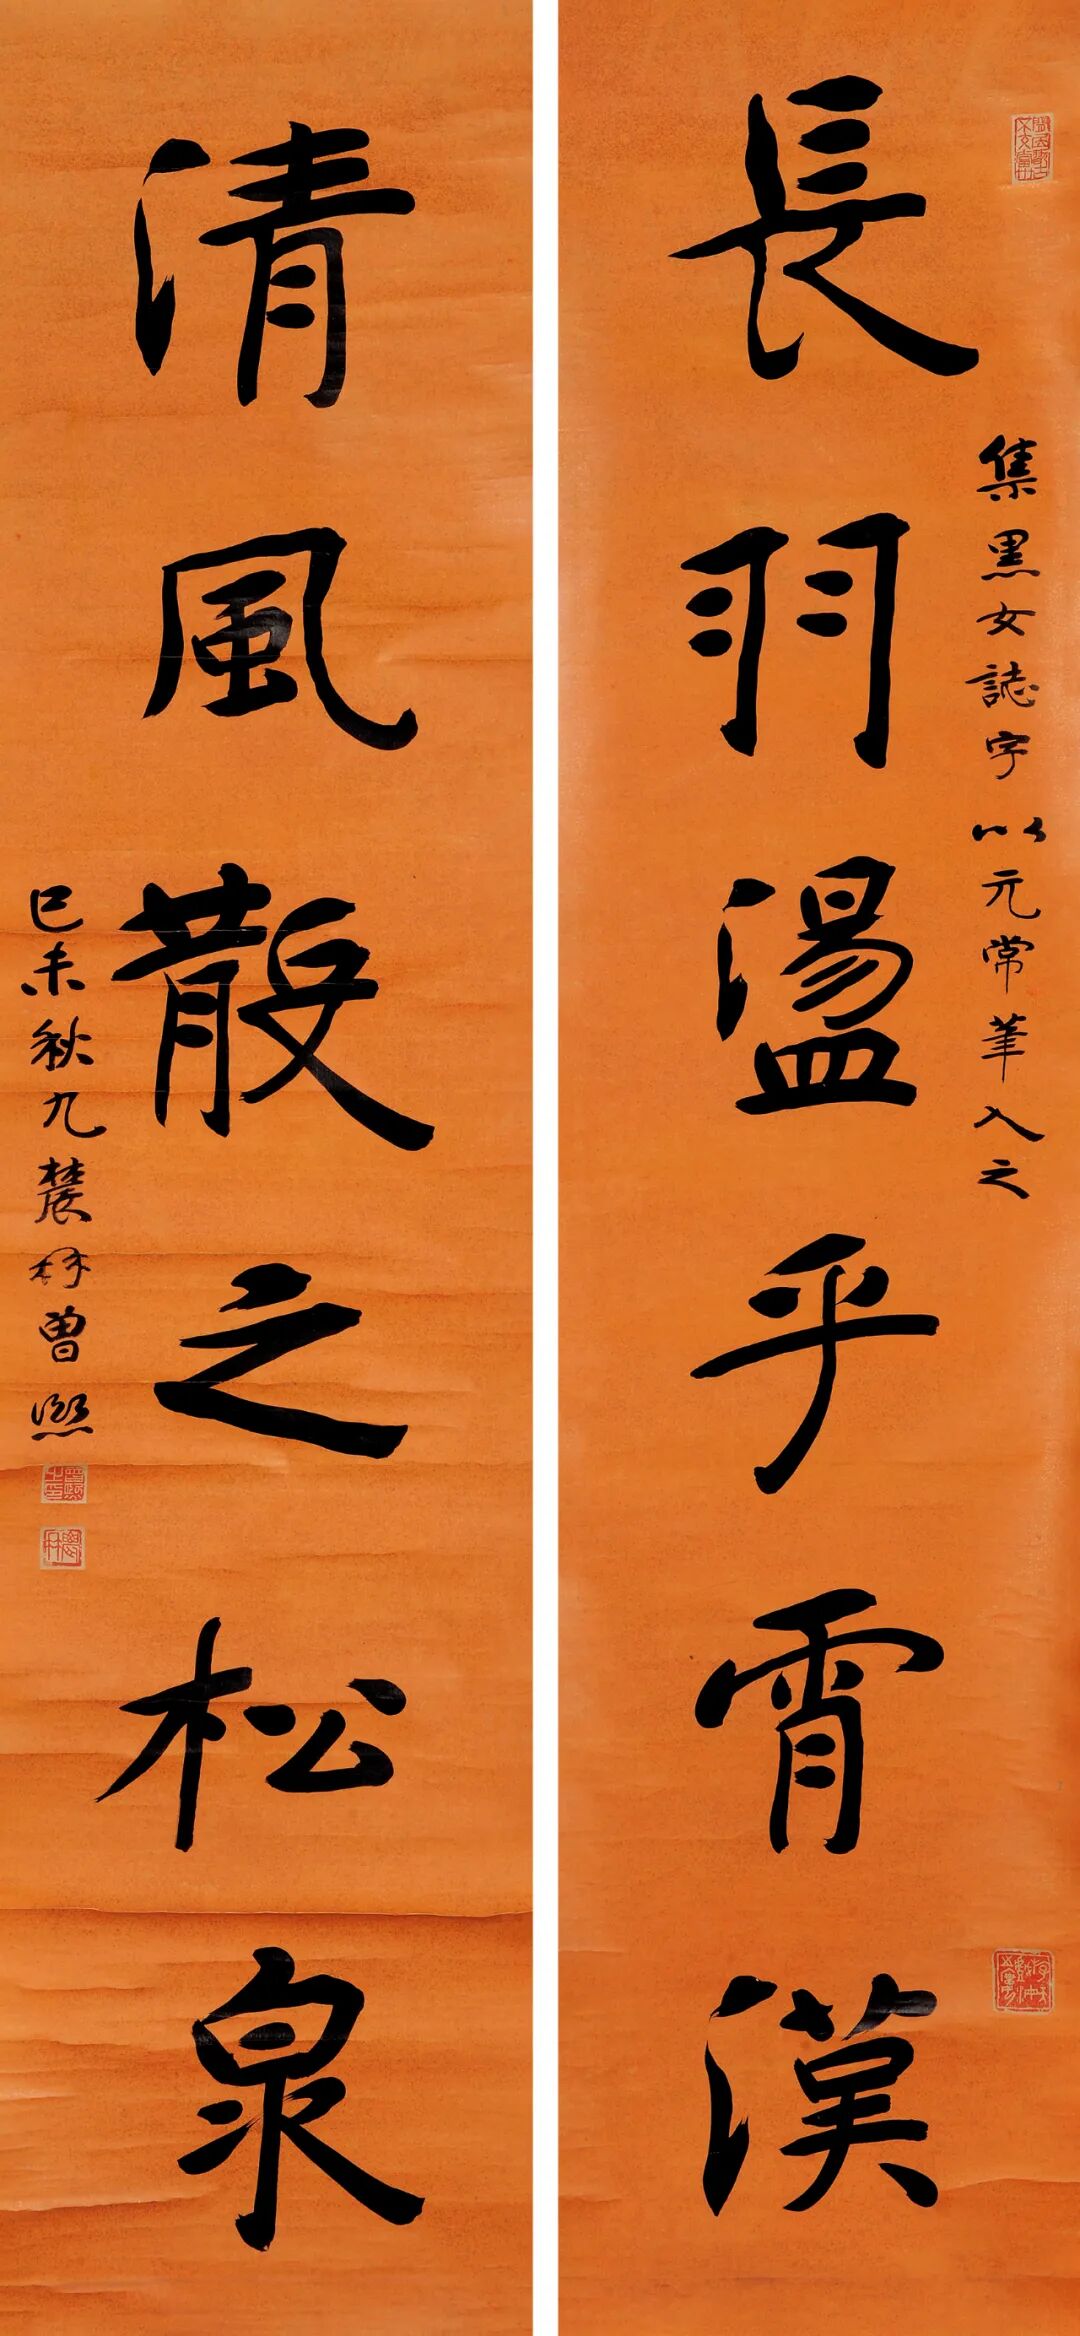 長羽盪乎霄漢
集黑女誌字以元常筆入之
清風散之松泉
己未秋九農髯曾熙